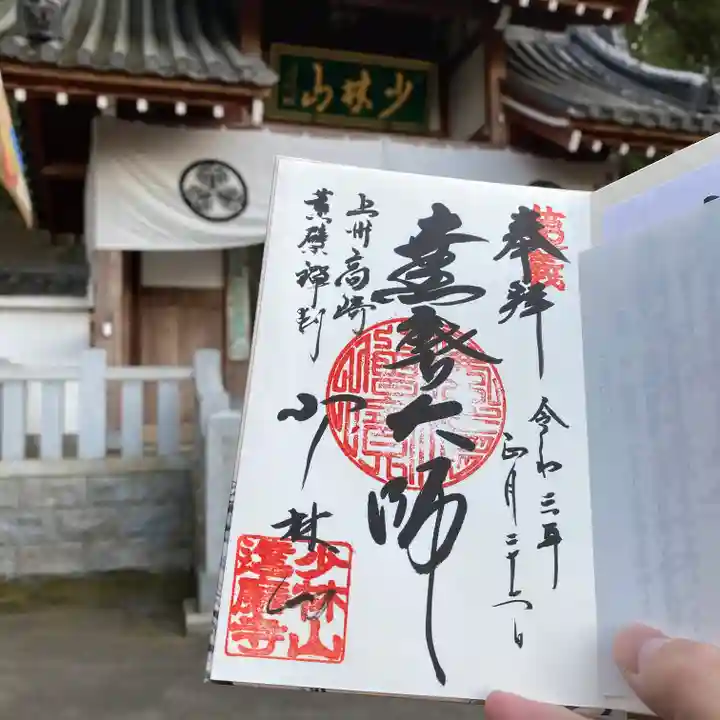 少林山
第一義
奉拝
令和三年
正月二十
大師
上州高崎
黄檗禅刹
少林山
少林山
達磨寺